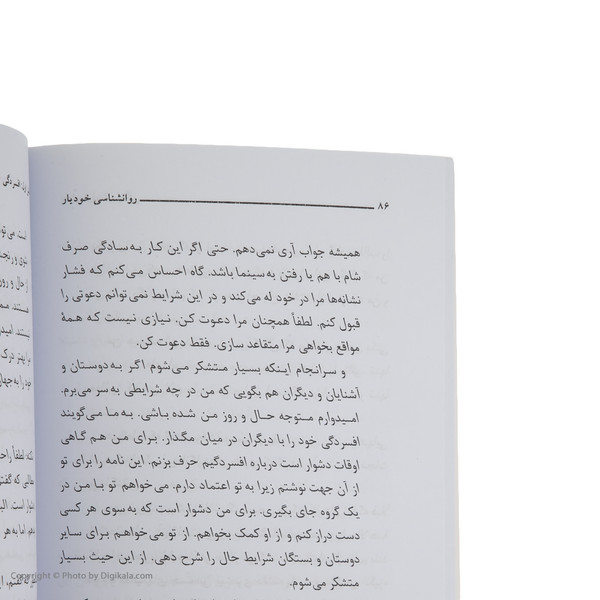 ۸۶ روانشناسی خودیار
همیشه جواب آری نمی‌دهم. حتی اگر این کار به‌سادگی صرف
شام با هم یا رفتن به سینما باشد. گاه احساس می‌کنم که فشار
نشانه‌ها مرا در خود له می‌کند و در این شرایط نمی‌توانم دعوتی را
قبول کنم. لطفاً همچنان مرا دعوت کن. نیازی نیست که همهٔ
مواقع بخواهی مرا متقاعد سازی. فقط دعوت کن.
و سرانجام اینکه بسیار متشکر می‌شوم اگر به‌دوستان و
آشنایان و دیگران هم بگویی که من در چه شرایطی به‌سر می‌برم.
امیدوارم متوجه حال و روز من شده باشی. به ما می‌گویند
افسردگی خود را با دیگران در میان مگذار. برای من هم گاهی
اوقات دشوار است درباره افسردگیم حرف بزنم. این نامه را برای تو
از آن جهت نوشتم زیرا به تو اعتماد دارم. می‌خواهم تو با من در
یک گروه جای بگیری. برای من دشوار است که به‌سوی هر کسی
دست دراز کنم و از او کمک بخواهم. از تو می‌خواهم برای سایر
دوستان و بستگان شرایط حال را شرح دهی. از این حیث بسیار
متشکر می‌شوم.
Copyright © Photo by Digikala.com